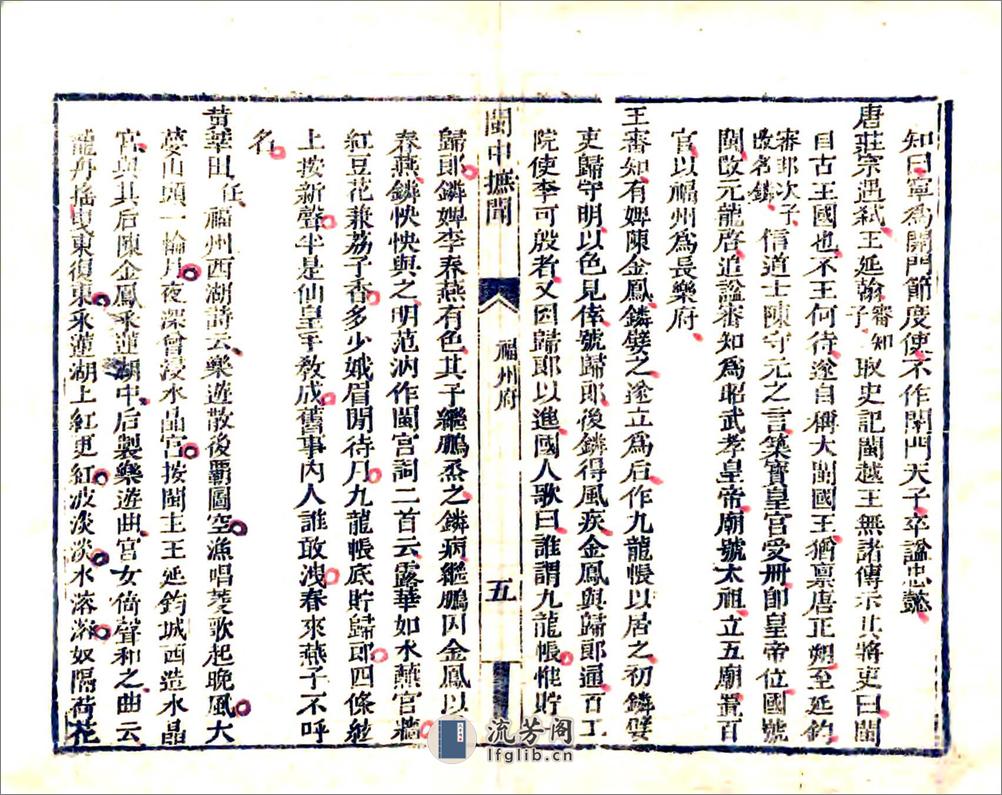 知曰寧爲開門節度使不作閉門天子卒謚忠懿
唐莊宗遇弒王延翰審知子取史記閩越王無諸傳示其將吏曰閩
自古王國也不王何待遂自稱大閩國王猶禀唐正朔至延鈞
審邽次子改名鏻信道士陳守元之言築寶皇宫受冊卽皇帝位國號
閩改元龍啓追謚審知爲昭武孝皇帝廟號太祖立五廟置百
官以福州爲長樂府
王審知有婢陳金鳳鏻嬖之遂立爲后作九龍帳以居之初鏻嬖
吏歸守明以色見倖號歸郎後鏻得風疾金鳳與歸郎通百工
院使李可殷者又因歸郎以進國人歌曰誰謂九龍帳惟貯一
閩中摭聞
福州府
五
歸郎鏻婢李春燕有色其子繼鵬烝之鏻病繼鵬因金鳳以
春燕鏻怏怏與之明范汭作閩宫詞二首云露華如水蘸宫牆
紅豆花兼荔子香多少娥眉閒待月九龍帳底貯歸郎四條絃
上按新聲半是仙皇手敎成舊事內人誰敢洩春來燕子不呼
名
黄華田任福州西湖詩云樂遊散後覇圖空漁唱菱歌起晚風大
夢山頭一輪月夜深曾浸水晶宫按閩主王延鈞城西造水晶
宫與其后陳金鳳采蓮湖中后製樂遊曲宫女倚聲和之曲云
龍舟搖曳東復東采蓮湖上紅更紅波淡淡水溶溶奴隔荷花
流芳阁
lfglib.cn